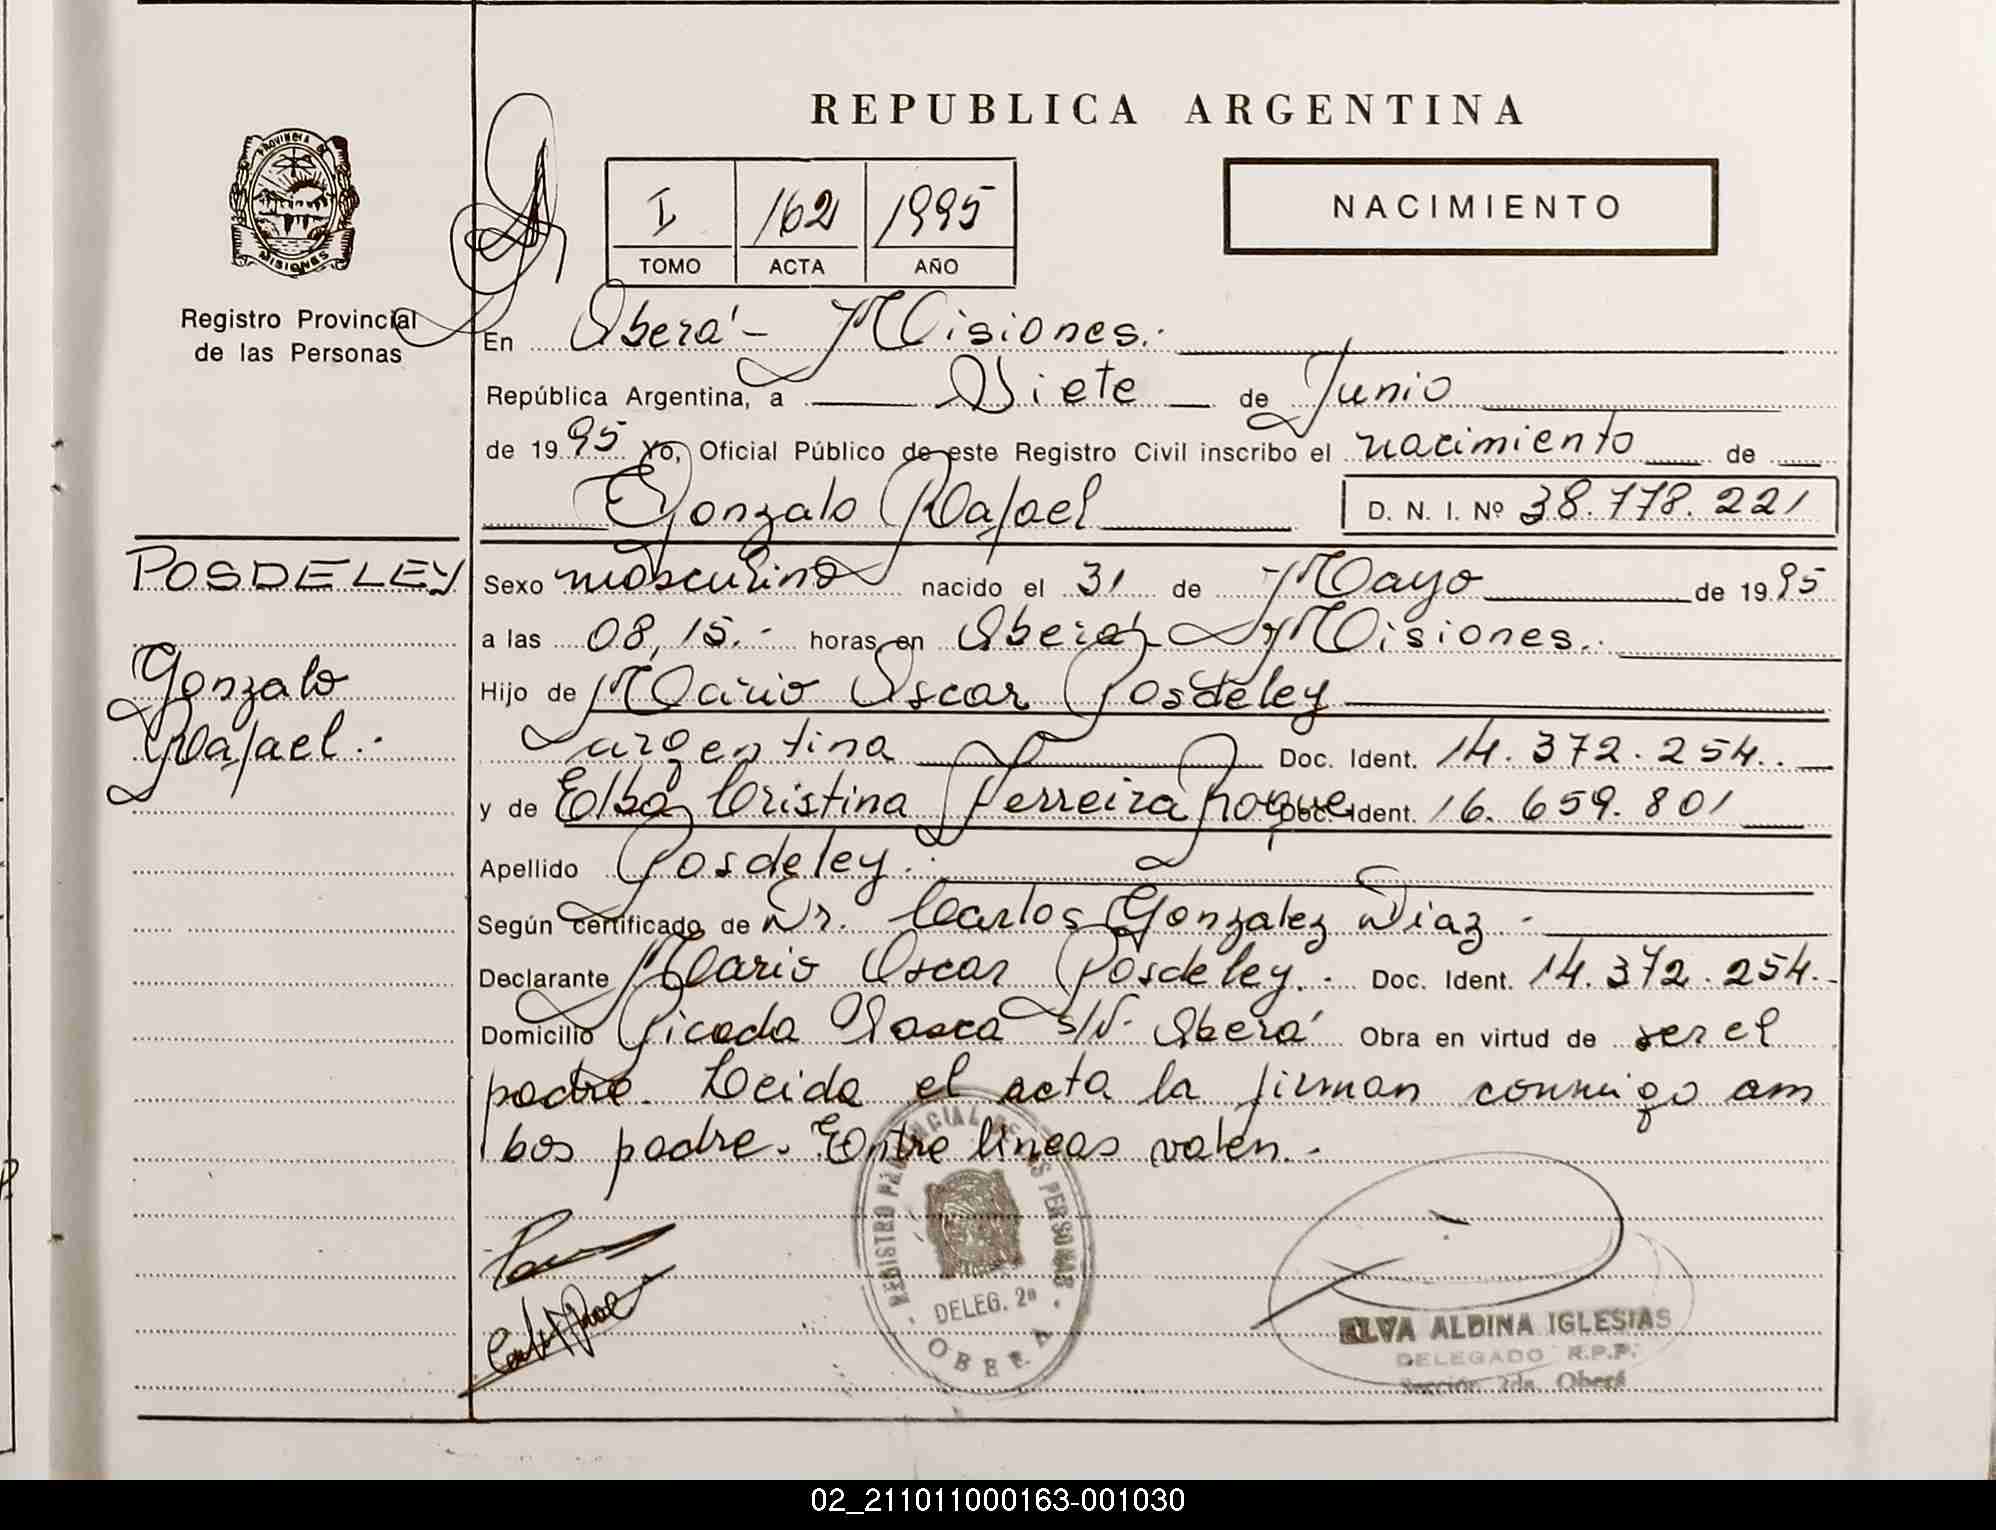 REPUBLICA ARGENTINA
PROVINCIA DE
MISIONES
Registro Provincial
de las Personas
I 162 1995
TOMO ACTA AÑO
NACIMIENTO
En Oberá - Misiones.-
República Argentina, a Siete de Junio
de 1995 Yo, Oficial Público de este Registro Civil inscribo el nacimiento de
Gonzalo Rafael D. N. I. Nº 38.778.221
POSDELEY
Gonzalo
Rafael.-
Sexo masculino nacido el 31 de Mayo de 1995
a las 08,15.- horas en Oberá - Misiones.-
Hijo de Mario Oscar Posdeley
argentina Doc. Ident. 14.372.254.
y de Elba Cristina Ferreira Roque Doc. Ident. 16.659.801
Apellido Posdeley.-
Según certificado de Dr. Carlos Gonzalez Diaz -
Declarante Mario Oscar Posdeley.- Doc. Ident. 14.372.254.-
Domicilio Picada s/N- Oberá Obra en virtud de ser el
padre. Leida el acta la firman conmigo am
bos padre. Entre lineas valen.-
REGISTRO PROVINCIAL DE LAS PERSONAS
DELEG. 2ª
OBERA
ELVA ALDINA IGLESIAS
DELEGADO R.P.P.
Sección 2da. Oberá
02_211011000163-001030